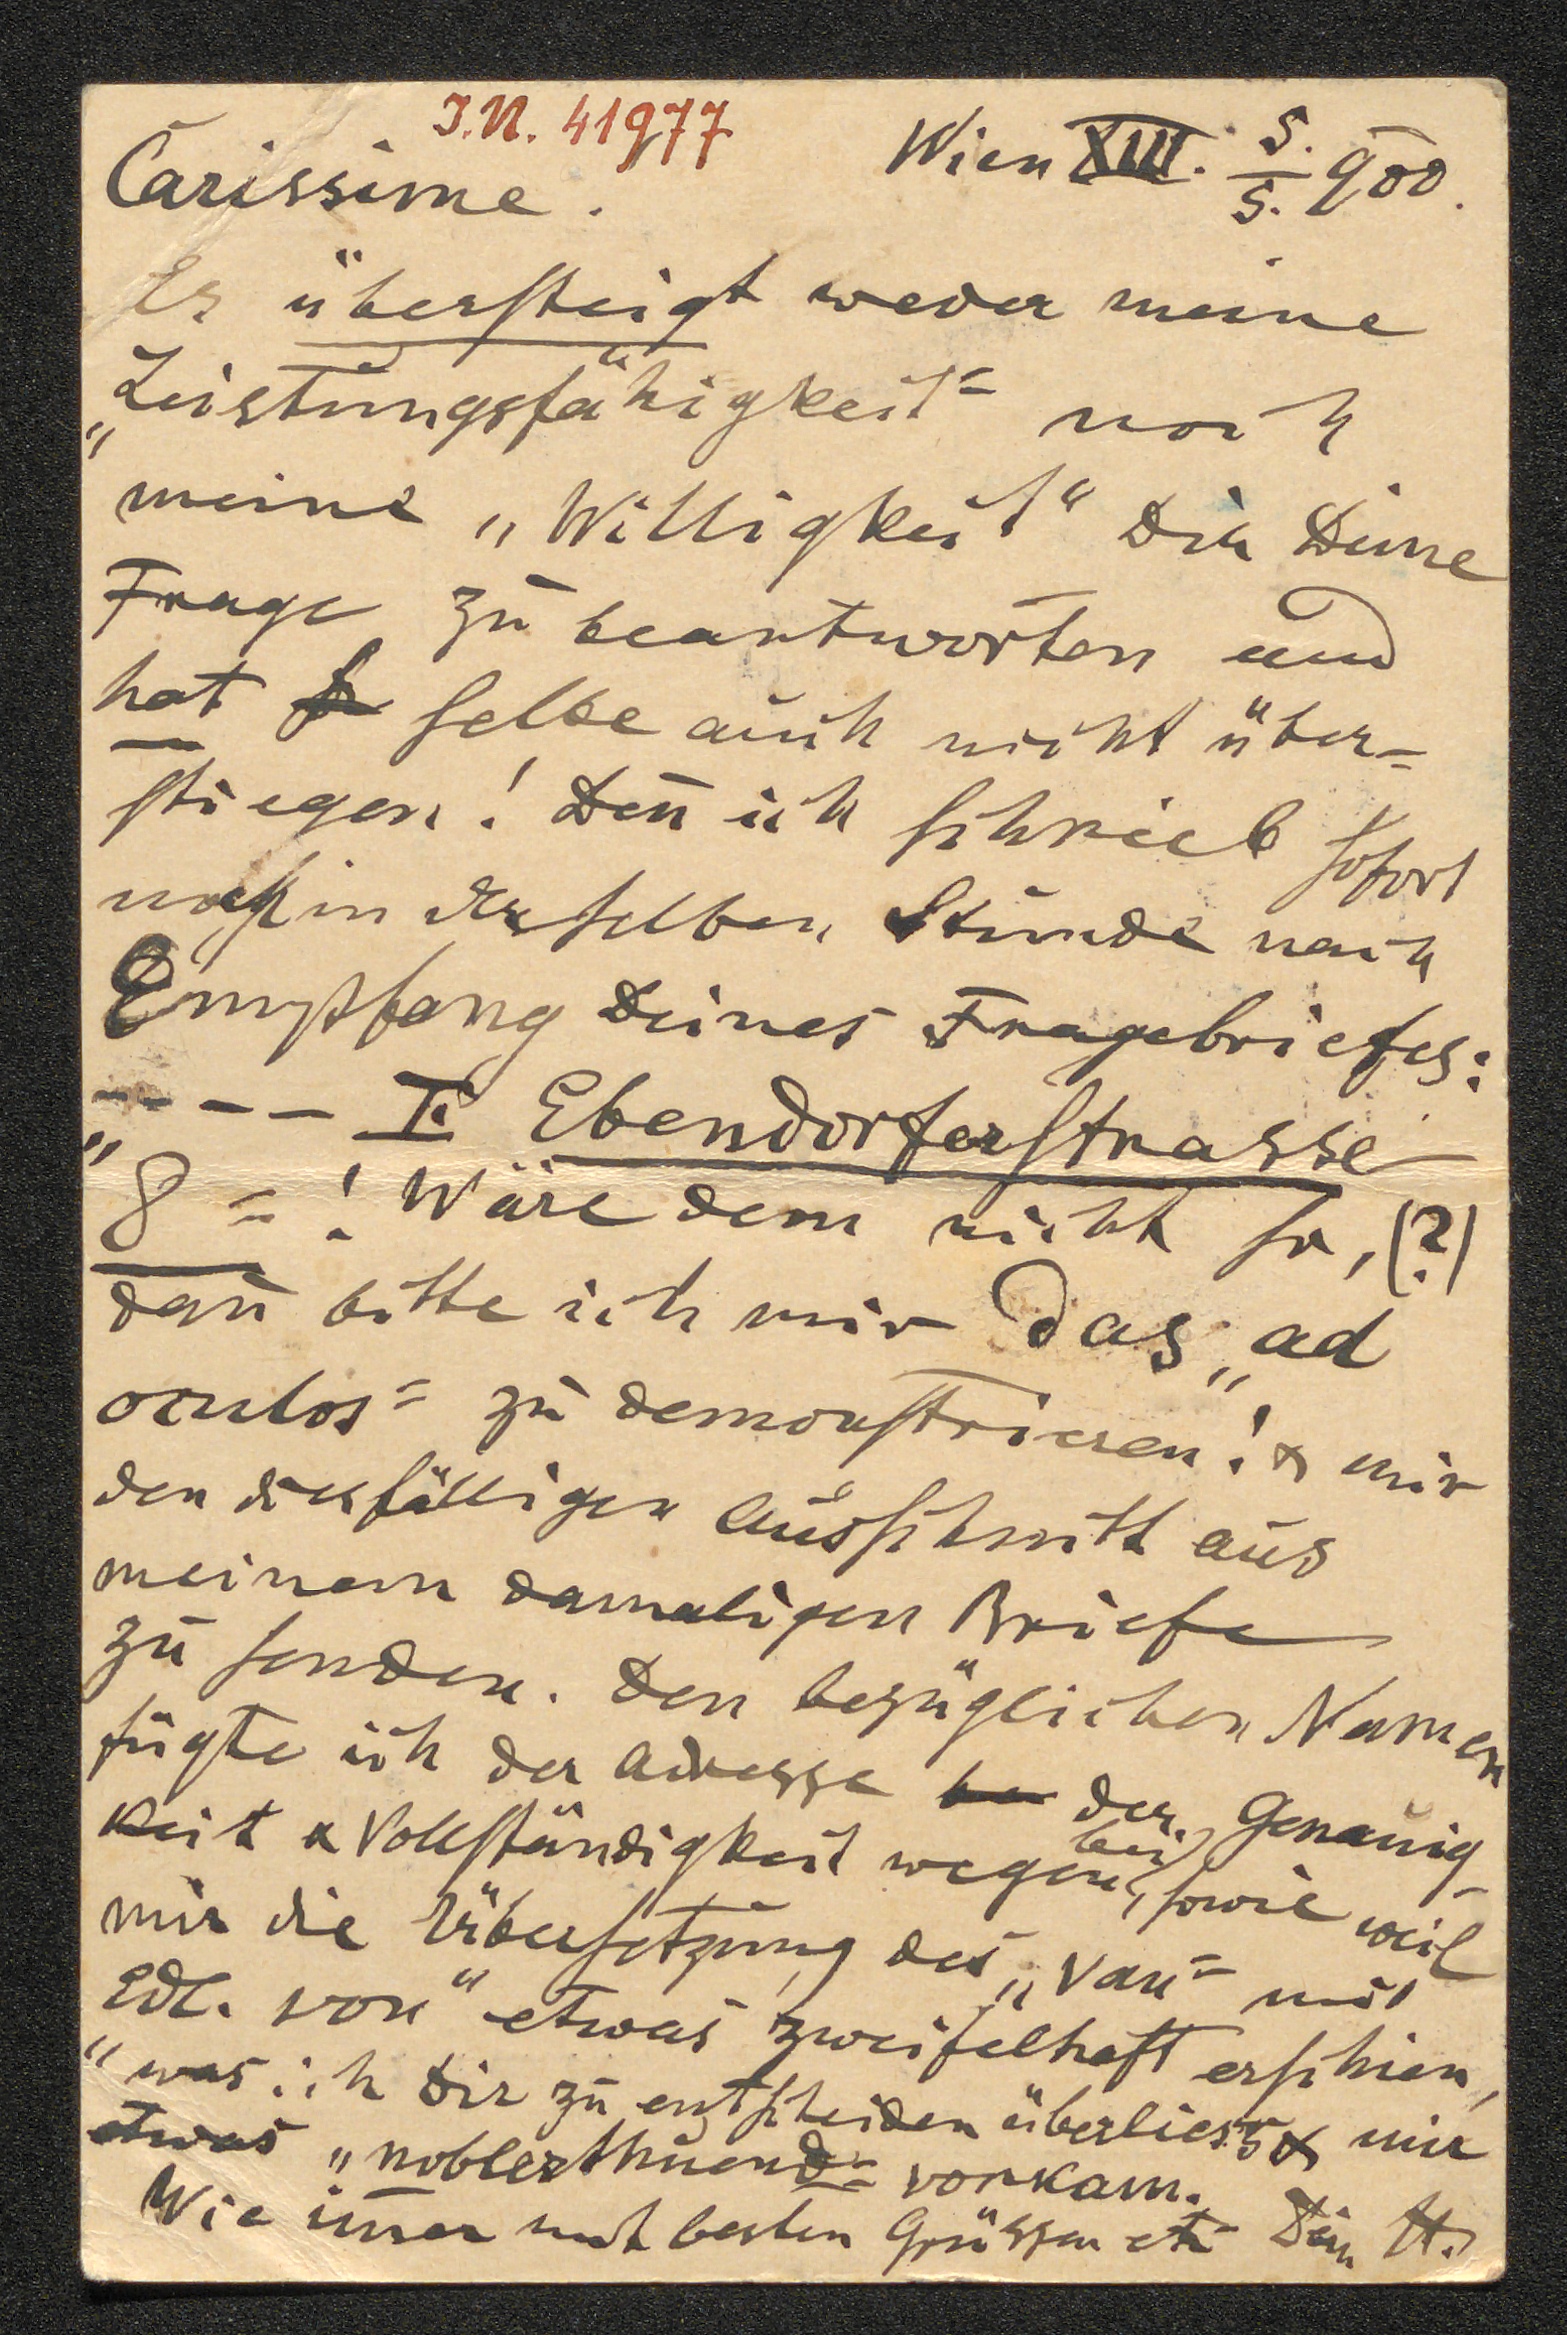 I.N. 41977
Wien XIII. 5./5. 900.
Carissime.
Es übersteigt weder meine
„Leistungsfähigkeit" noch
meine „Willigkeit" Dir Deine
Frage zu beantworten und
hat selbe auch nicht über=
stiegen! Den̄ ich schrieb sofort
noch in derselben Stunde nach
Empfang Deines Fragebriefes:
„– – – – I. Ebendorferstrasse
8"! Wäre dem nicht so, (?)
dan̄ bitte ich mir das „ad
oculos" zu demonstrieren! & mir
den diesfälligen Ausschnitt aus
meinem damaligen Briefe
zu senden. Den bezüglichen Namen
fügte ich der Adresse der Genauig-
keit & Vollständigkeit wegen bei, sowie weil
mir die Übersetzung des „van" mit
„Edl. von" etwas zweifelhaft erschien,
was ich Dir zu entscheiden überliess & mir
etwas „noblerthuend" vorkam.
Wie im̄er mit besten Grüssen etc Dein H.